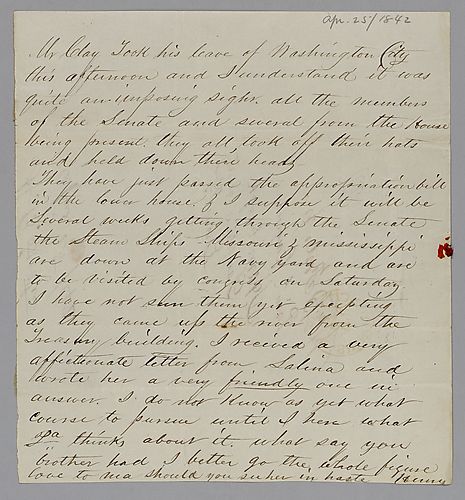 Apr. 25/1842
Mr Clay Took his leave of Washington City
this afternoon and I understand it was
quite an imposing sight. all the members
of the Senate and several from the House
being present. they all took off their hats
and held down their heads
They have just passed the appropriation bill
in the lower house. & I suppose it will be
Several weeks getting through the Senate
the Steam Ships Missouri & Mississippi
are down at the Navy yard and are
to be visited by congress on Saturday
I have not seen them yet excepting
as they came up the river from the
Treasury building. I received a very
affectionate letter from Salina and
wrote her a very friendly one in
answer. I do not know as yet what
course to pursue until I here what
pa thinks about it. what say you
brother had I better go the whole figure
love to ma should you see her in haste Henry